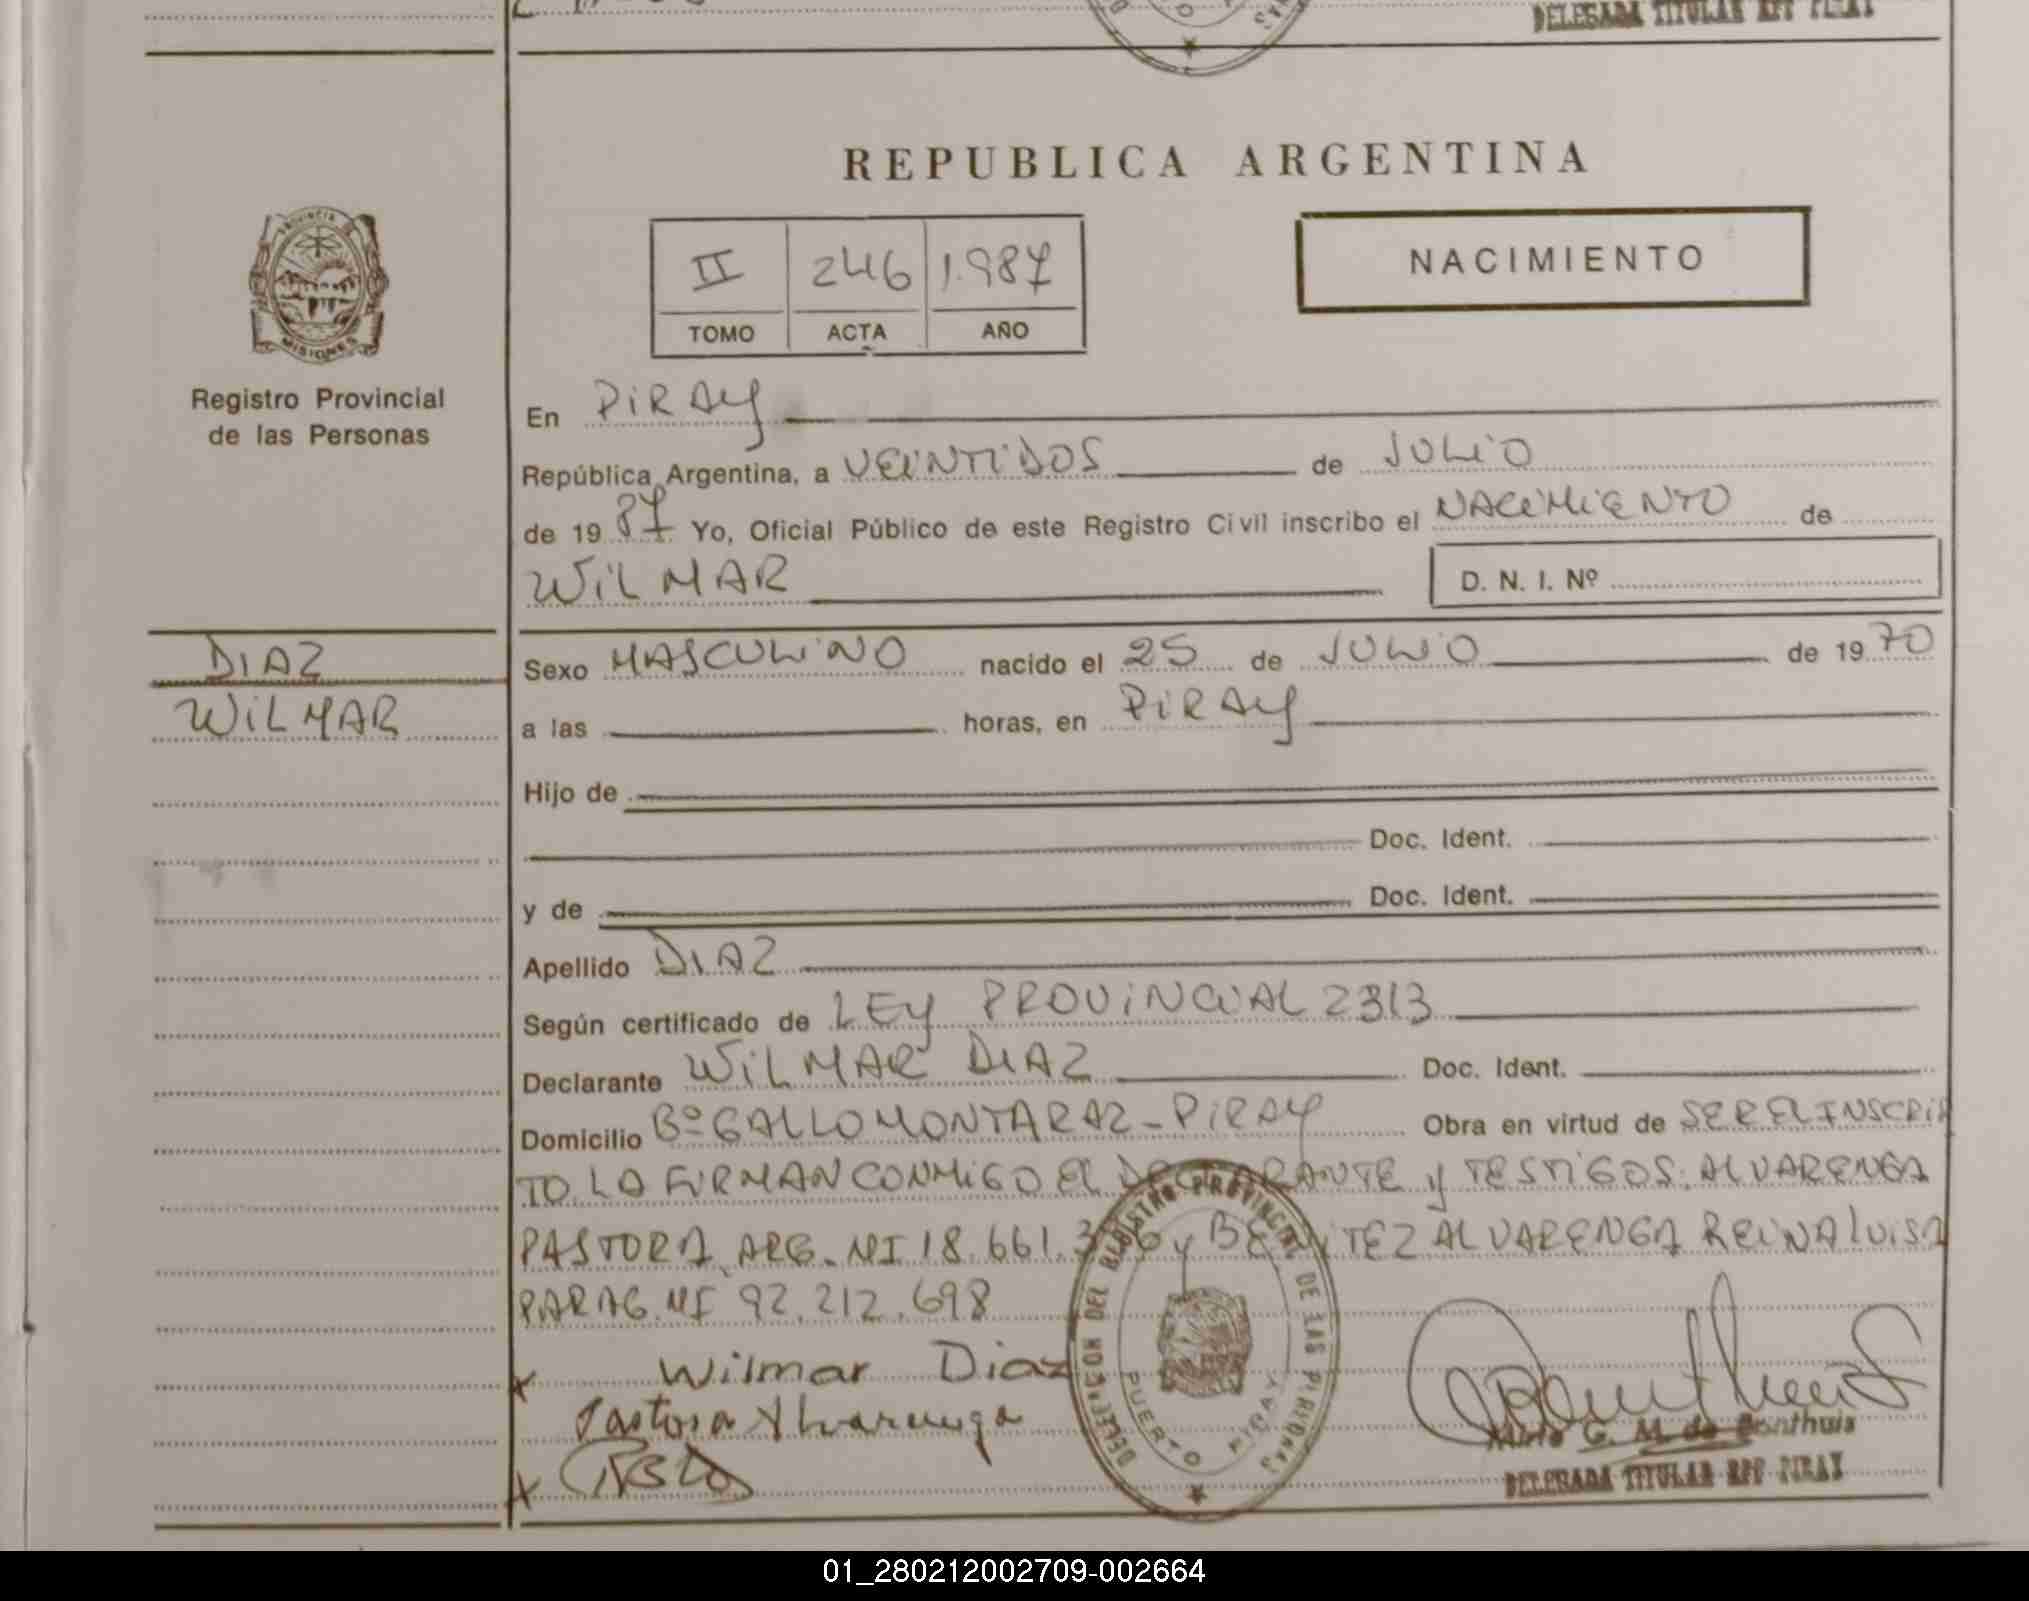 DELEGADA TITULAR RPP PIRAY
REPUBLICA ARGENTINA
PROVINCIA
MISIONES
Registro Provincial
de las Personas
II 246 1.987
TOMO ACTA AÑO
NACIMIENTO
En PIRAY
República Argentina, a VEINTIDOS de JULIO
de 19 87 Yo, Oficial Público de este Registro Civil inscribo el NACIMIENTO de
WILMAR D. N. I. Nº
DIAZ
WILMAR
Sexo MASCULINO nacido el 25 de JULIO de 19 70
a las horas, en PIRAY
Hijo de
Doc. Ident.
y de Doc. Ident.
Apellido DIAZ
Según certificado de LEY PROVINCIAL 2313
Declarante WILMAR DIAZ Doc. Ident.
Domicilio Bº GALLO MONTARAZ - PIRAY Obra en virtud de SER EL INSCRIP
TO LA FIRMAN CONMIGO EL DECLARANTE y TESTIGOS: ALVARENGA
PASTORA ARG. MI 18.661.3 6 y BENITEZ ALVARENGA REINA LUISA
PARAG. MI 92.212.698
x Wilmar Diaz
Pastora Alvarenga
x
DELEGACION DEL REGISTRO PROVINCIAL DE LAS PERSONAS
PUERTO PIRAY
G. M. de Bonthuis
DELEGADA TITULAR RPP PIRAY
01_280212002709-002664